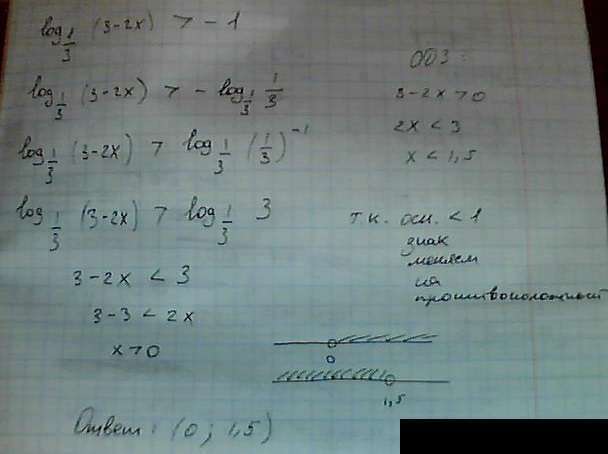 log 1/3 (3-2x) > -1
log 1/3 (3-2x) > - log 1/3 1/3
log 1/3 (3-2x) > log 1/3 (1/3)^-1
log 1/3 (3-2x) > log 1/3 3
3-2x < 3
3-3 < 2x
x>0
ОДЗ:
3-2x>0
2x < 3
x < 1,5
т.к. осн. < 1
знак
меняем
на
противоположный
0
1,5
Ответ: (0; 1,5)